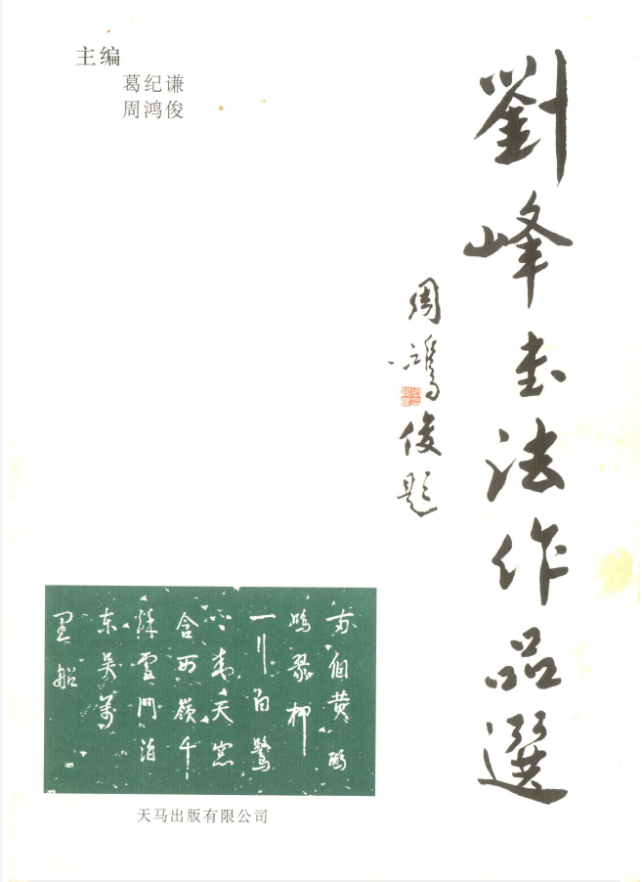 主编
葛纪谦
周鸿俊
劉峰书法作品選
周鸿俊题
两個黄鹂
鳴翠柳
一行白鷺
上青天窓
含西嶺千
秋雪門泊
东吴萬
里船
天马出版有限公司